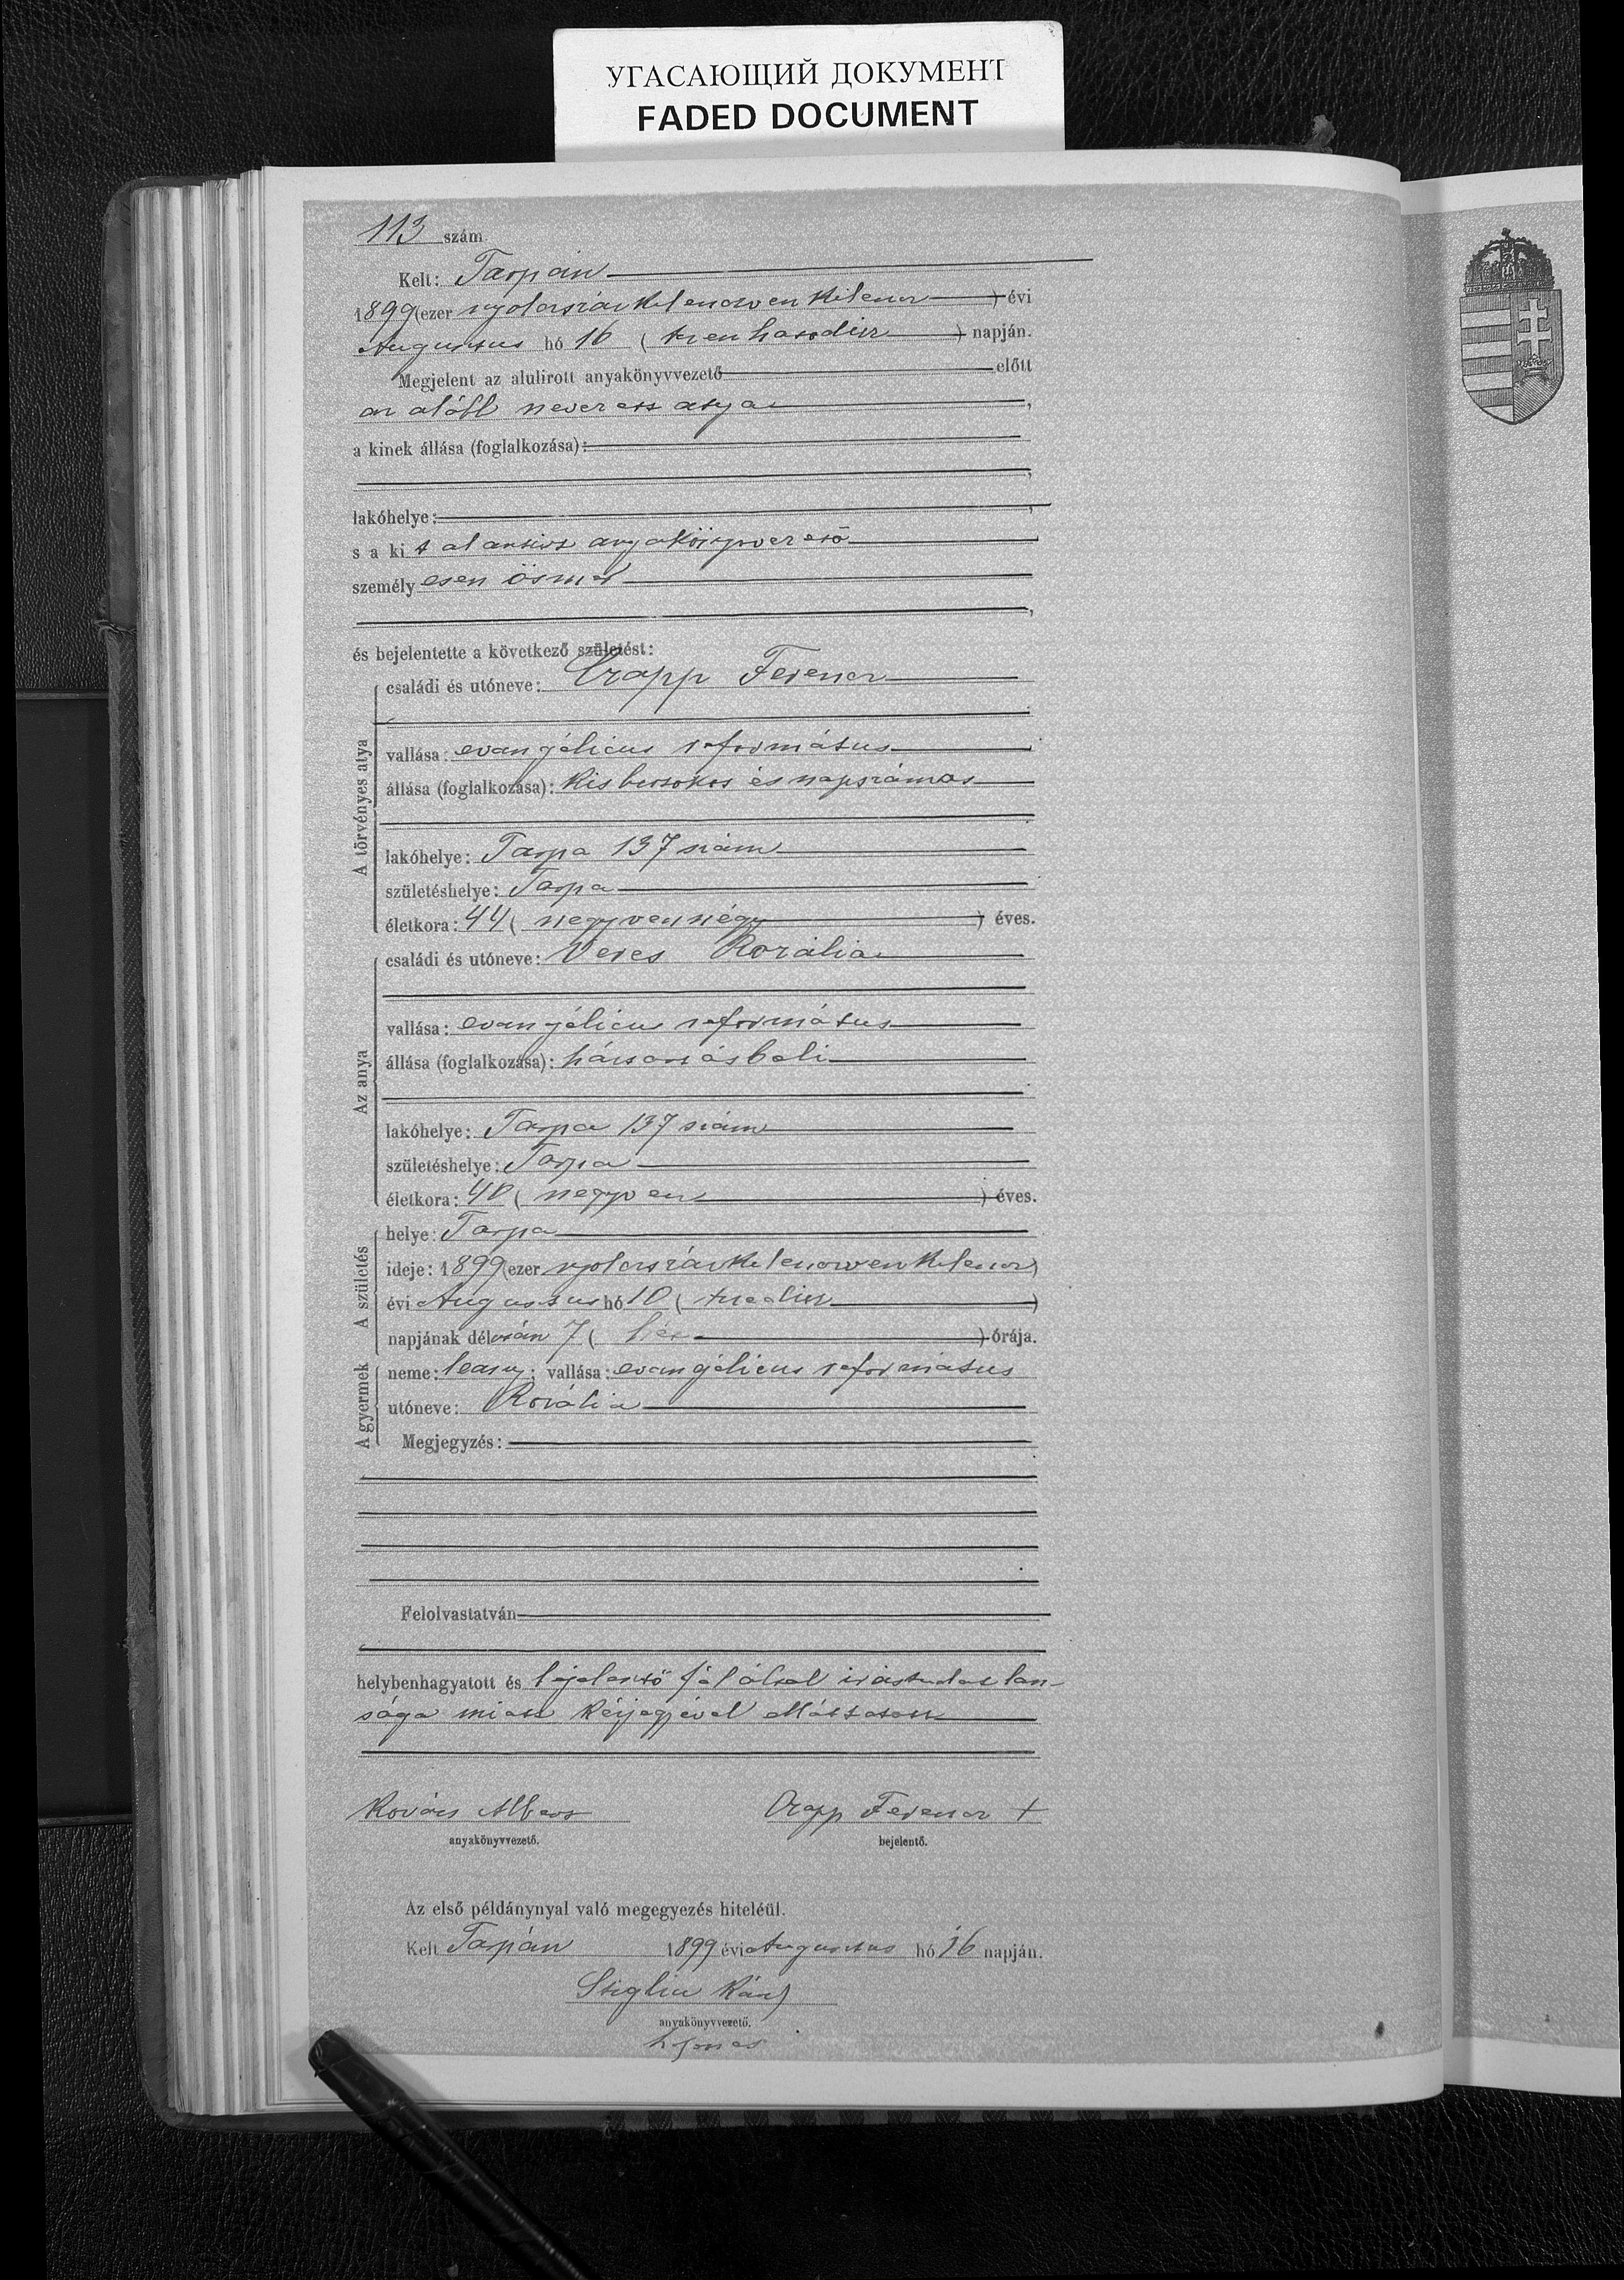 УГАСАЮЩИЙ ДОКУМЕНТ
FADED DOCUMENT
113 szám
Kelt: Tarpán
1899 (ezer nyolcszázkilencvenkilenc) évi
Augusztus hó 16 (tizenhatodik) napján.
Megjelent az alulirott anyakönyvvezető előtt
az alább nevezett atya,
a kinek állása (foglalkozása):
lakóhelye:
s a kit alantirt anyakönyvvezető
személyesen ösmer
és bejelentette a következő születést:
A törvényes atya
családi és utóneve: Czapp Ferencz
vallása: evangélicus református
állása (foglalkozása): kisbirtokos és napszámos
lakóhelye: Tarpa 137 szám
születéshelye: Tarpa
életkora: 44 (negyvennégy) éves.
Az anya
családi és utóneve: Veres Rozália
vallása: evangélicus református
állása (foglalkozása): háztartásbeli
lakóhelye: Tarpa 137 szám
születéshelye: Tarpa
életkora: 40 (negyven) éves.
A születés
helye: Tarpa
ideje: 1899 (ezer nyolcszázkilencvenkilenc)
évi Augusztus hó 10 (tizedik)
napjának délután 7 (hét) órája.
A gyermek
neme: leány; vallása: evangélicus református
utóneve: Rozália
Megjegyzés:
Felolvastatván
helybenhagyatott és bejelentő fél által irástudatlan-
sága miatt kézjegyével elláttatott
Kovács Albert
anyakönyvvezető.
Czapp Ferencz +
bejelentő.
Az első példánynyal való megegyezés hiteléül.
Kelt Tarpán 1899 évi Augusztus hó 16 napján.
anyakönyvvezető.